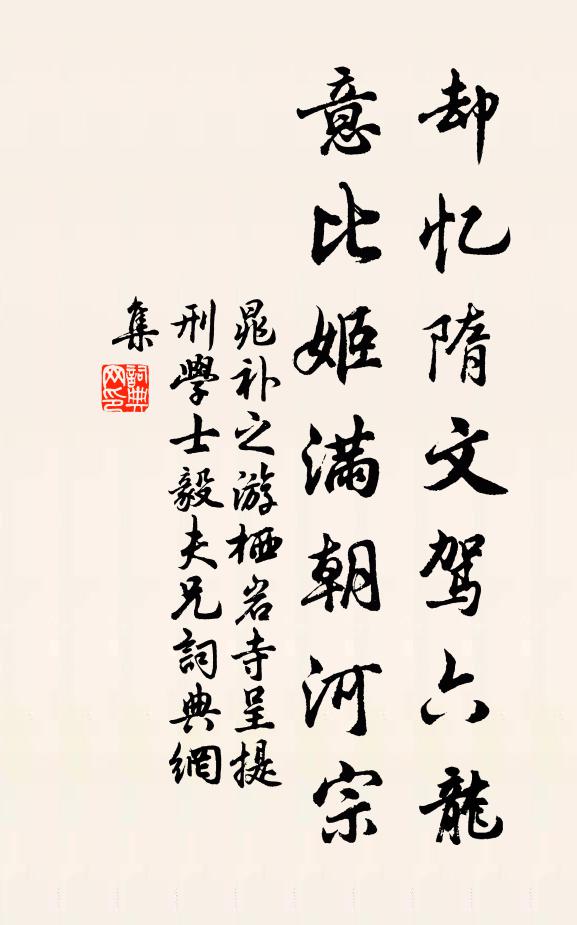 却忆隋文驾六龍
意比姬满朝河宗
晁补之游栖岩寺呈提
刑學士毅夫兄詞典網
集
詞典
网印